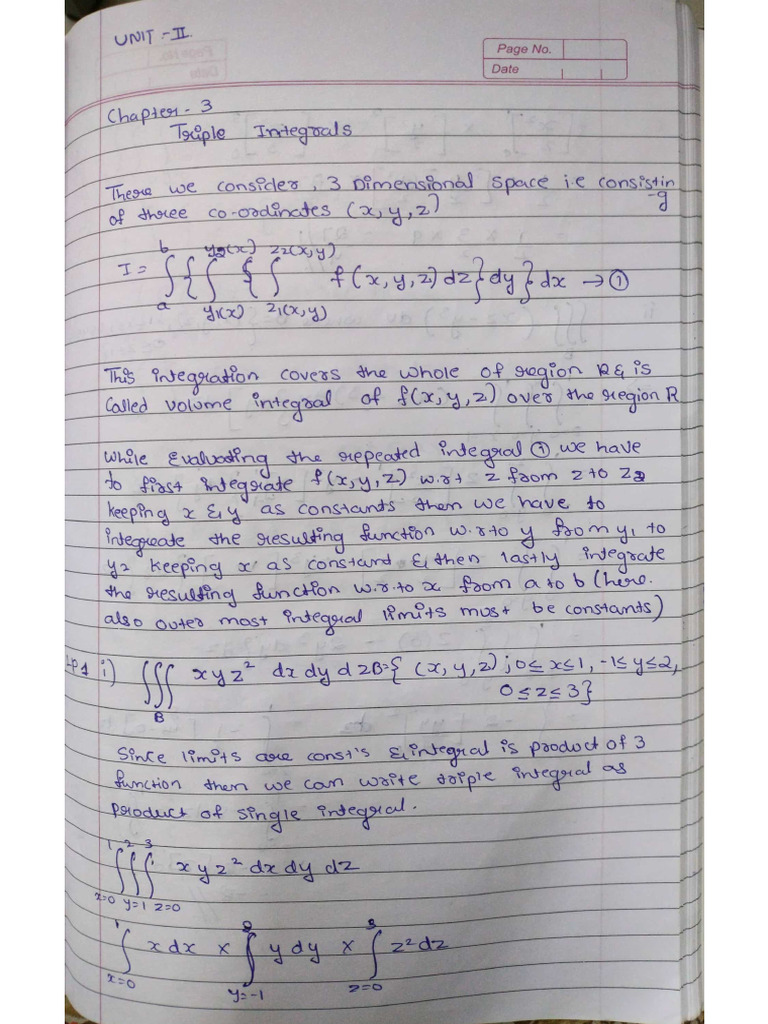 UNIT :- II.
Page No.
Date
Chapter - 3
Triple Integrals
There we consider, 3 Dimensional space i.e consistin
-g
of three co-ordinates (x, y, z)
I = ∫_a^b { ∫_{y1(x)}^{y2(x)} { ∫_{z1(x,y)}^{z2(x,y)} f(x, y, z) dz } dy } dx → ①
This integration covers the whole of region R & is
Called volume integral of f(x, y, z) over the region R
While Evaluating the repeated integral ①, we have
to first integrate f(x, y, z) w.r.t z from z to z2
keeping x & y as constants then we have to
integreate the resulting function w.r.to y from y1 to
y2 keeping x as constant & then lastly integrate
the resulting function w.r.to x from a to b (here.
also outer most integral limits must be constants)
i) ∭_B x y z² dx dy dz B={ (x, y, z) ; 0 ≤ x ≤ 1, -1 ≤ y ≤ 2,
0 ≤ z ≤ 3}
Since limits are const's & integral is product of 3
function then we can write triple integral as
product of single integral.
∫_{x=0}^1 ∫_{y=1}^2 ∫_{z=0}^3 x y z² dx dy dz
∫_{x=0}^1 x dx × ∫_{y=-1}^2 y dy × ∫_{z=0}^3 z² dz